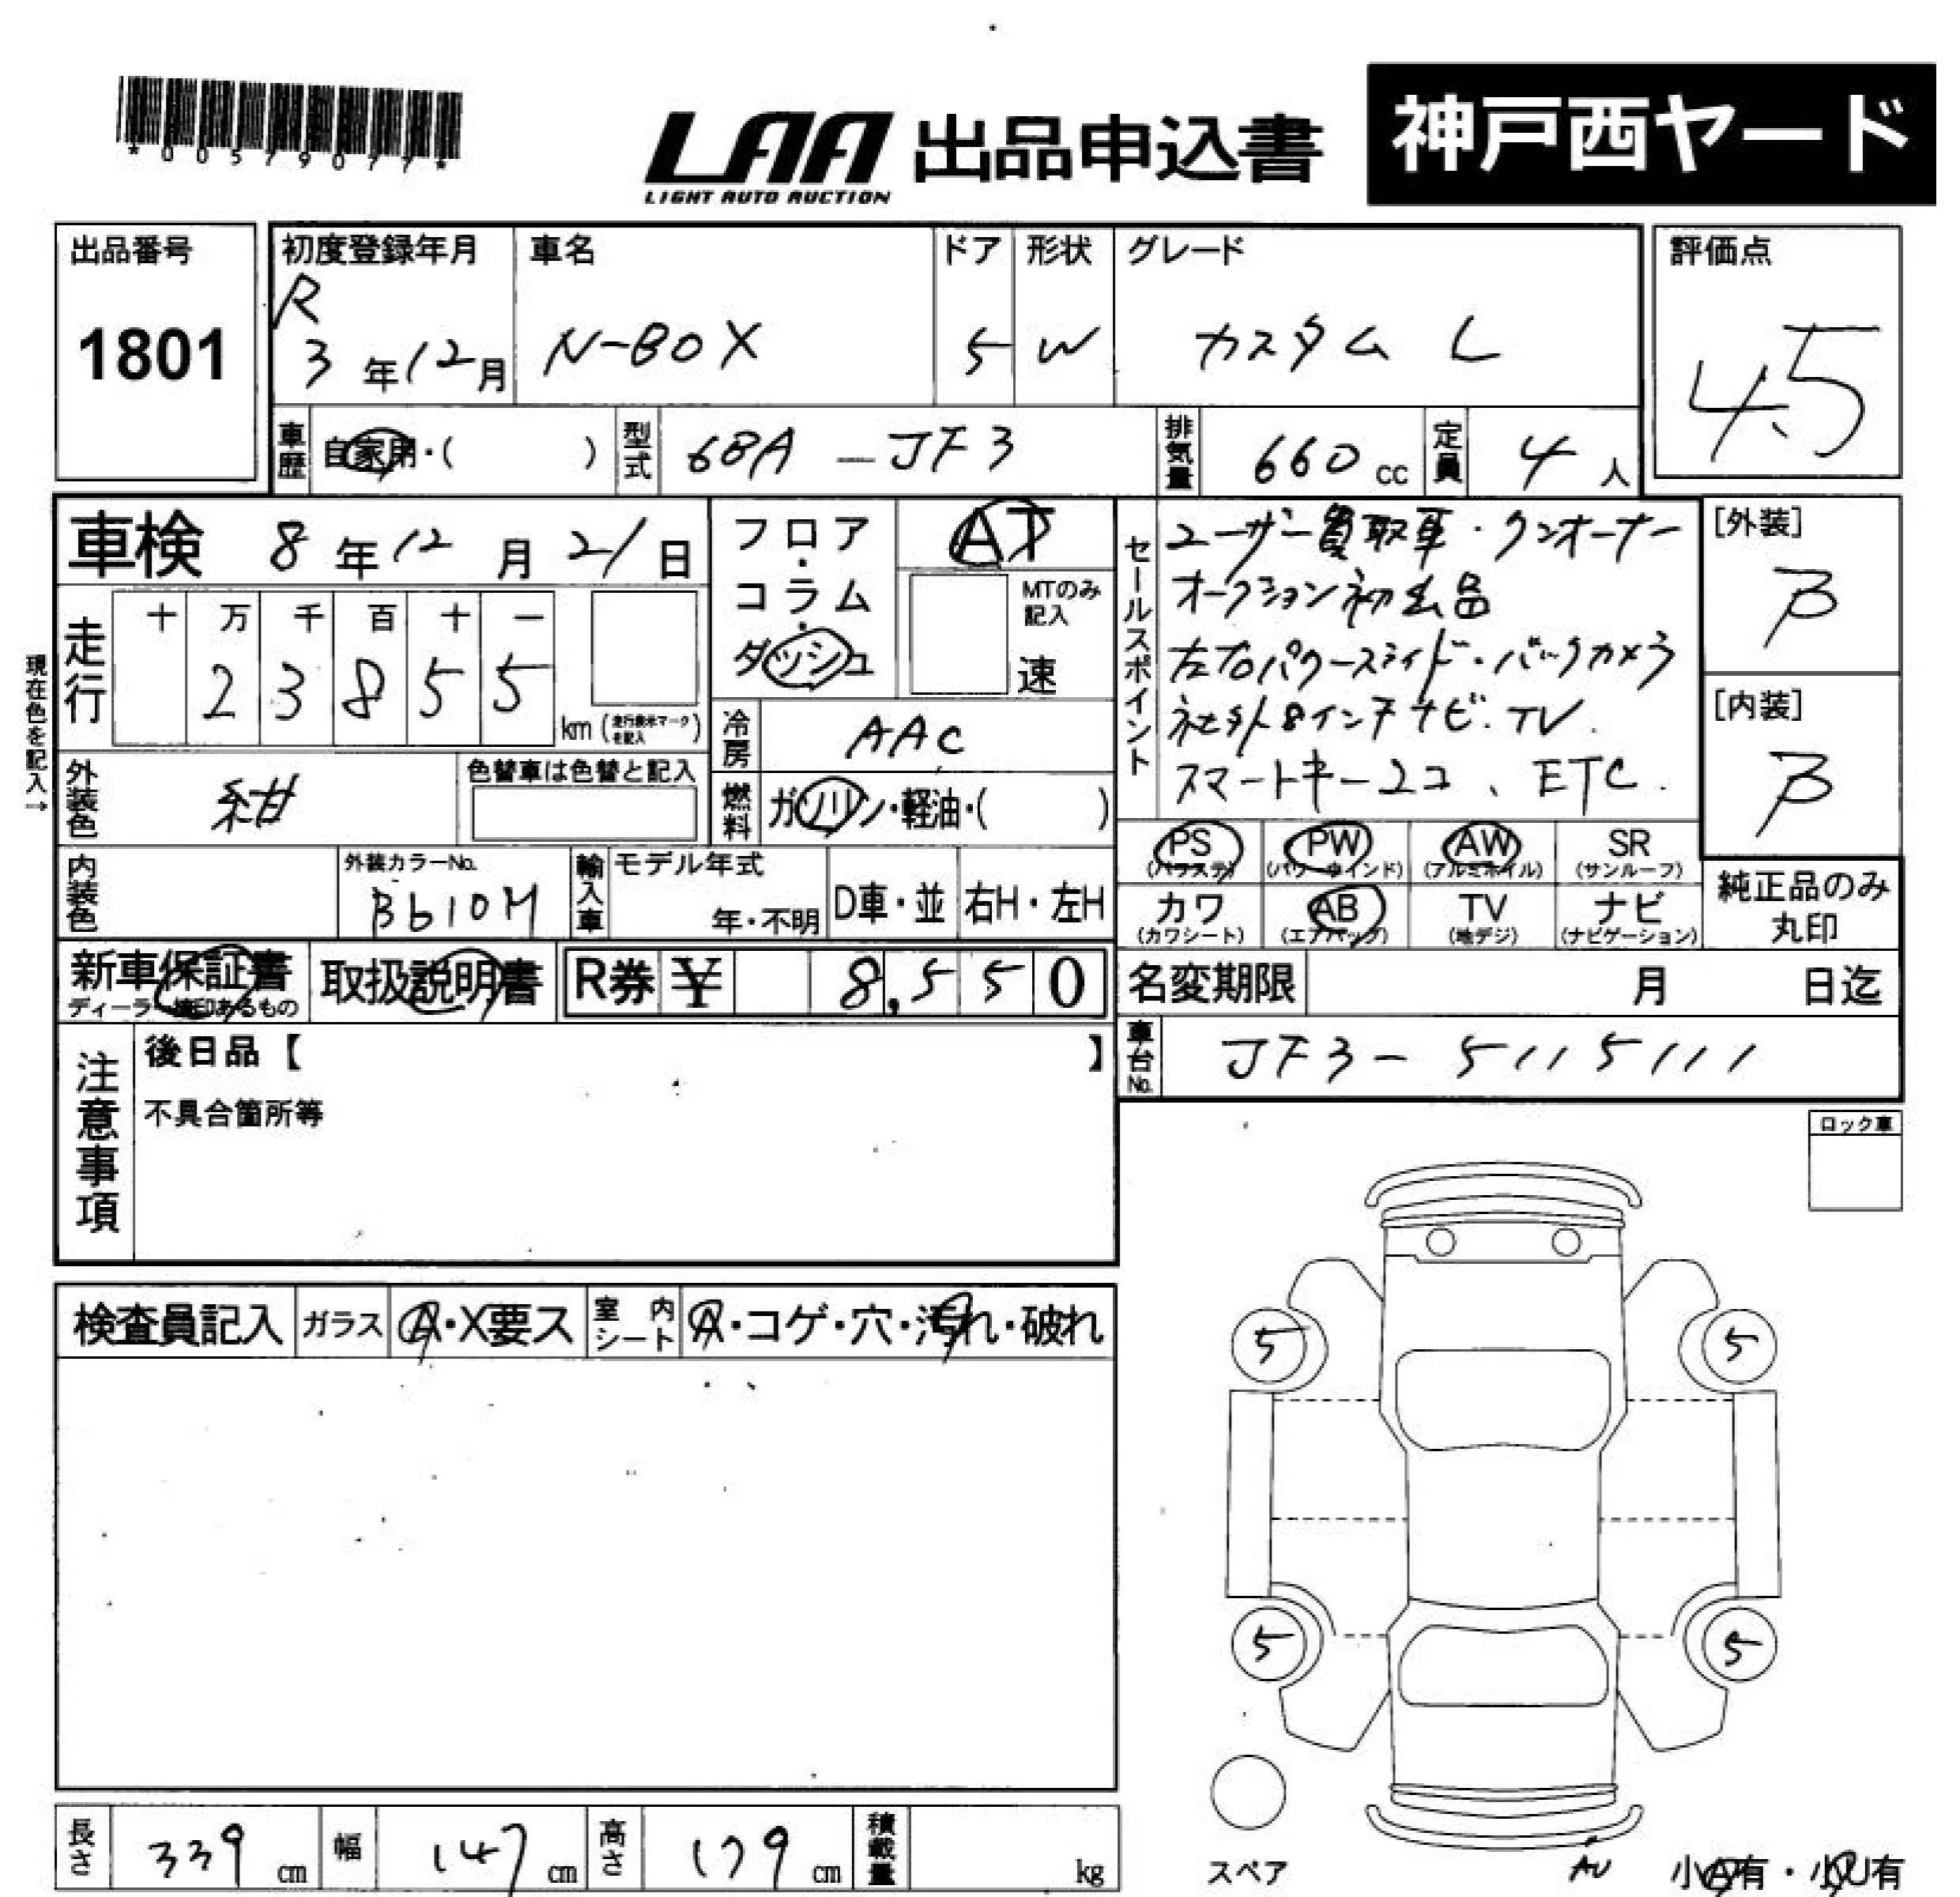 *00579077*
LAA 出品申込書 神戸西ヤード
LIGHT AUTO AUCTION
出品番号 1801
初度登録年月 R 3年12月
車名 N-BOX
ドア 5
形状 W
グレード カスタム L
評価点 4.5
車歴 自家用・( )
型式 6BA-JF3
排気量 660cc
定員 4人
車検 8年12月21日
フロア・コラム・ダッシュ
AT
MTのみ記入 速
現在色を記入→
走行 十 万 千 百 十 一
23855 km (走行表示マークを記入)
冷房 AAC
外装色 紺
色替車は色替と記入
燃料 ガソリン・軽油・( )
内装色
外装カラーNo. B610M
輸入車 モデル年式 年・不明 D車・並 右H・左H
セールスポイント
ユーザー買取車・ワンオーナー
オークション初出品
左右パワースライド・バックカメラ
社外8インチナビ・TV.
スマートキー2コ、ETC.
[外装] B
[内装] B
PS (パワステ) PW (パワーウインド) AW (アルミホイル) SR (サンルーフ)
カワ (カワシート) AB (エアバッグ) TV (地デジ) ナビ (ナビゲーション)
純正品のみ丸印
新車保証書
取扱説明書
R券 ¥ 8,550
名変期限 月 日迄
車台No. JF3-5115111
注意事項
後日品【 】
不具合箇所等
ロック車
検査員記入 ガラス A・X要ス 室内シート A・コゲ・穴・汚れ・破れ
5 5
5 5
スペア
AU
小A有・小U有
長さ 339cm 幅 147cm 高さ 179cm 積載量 kg